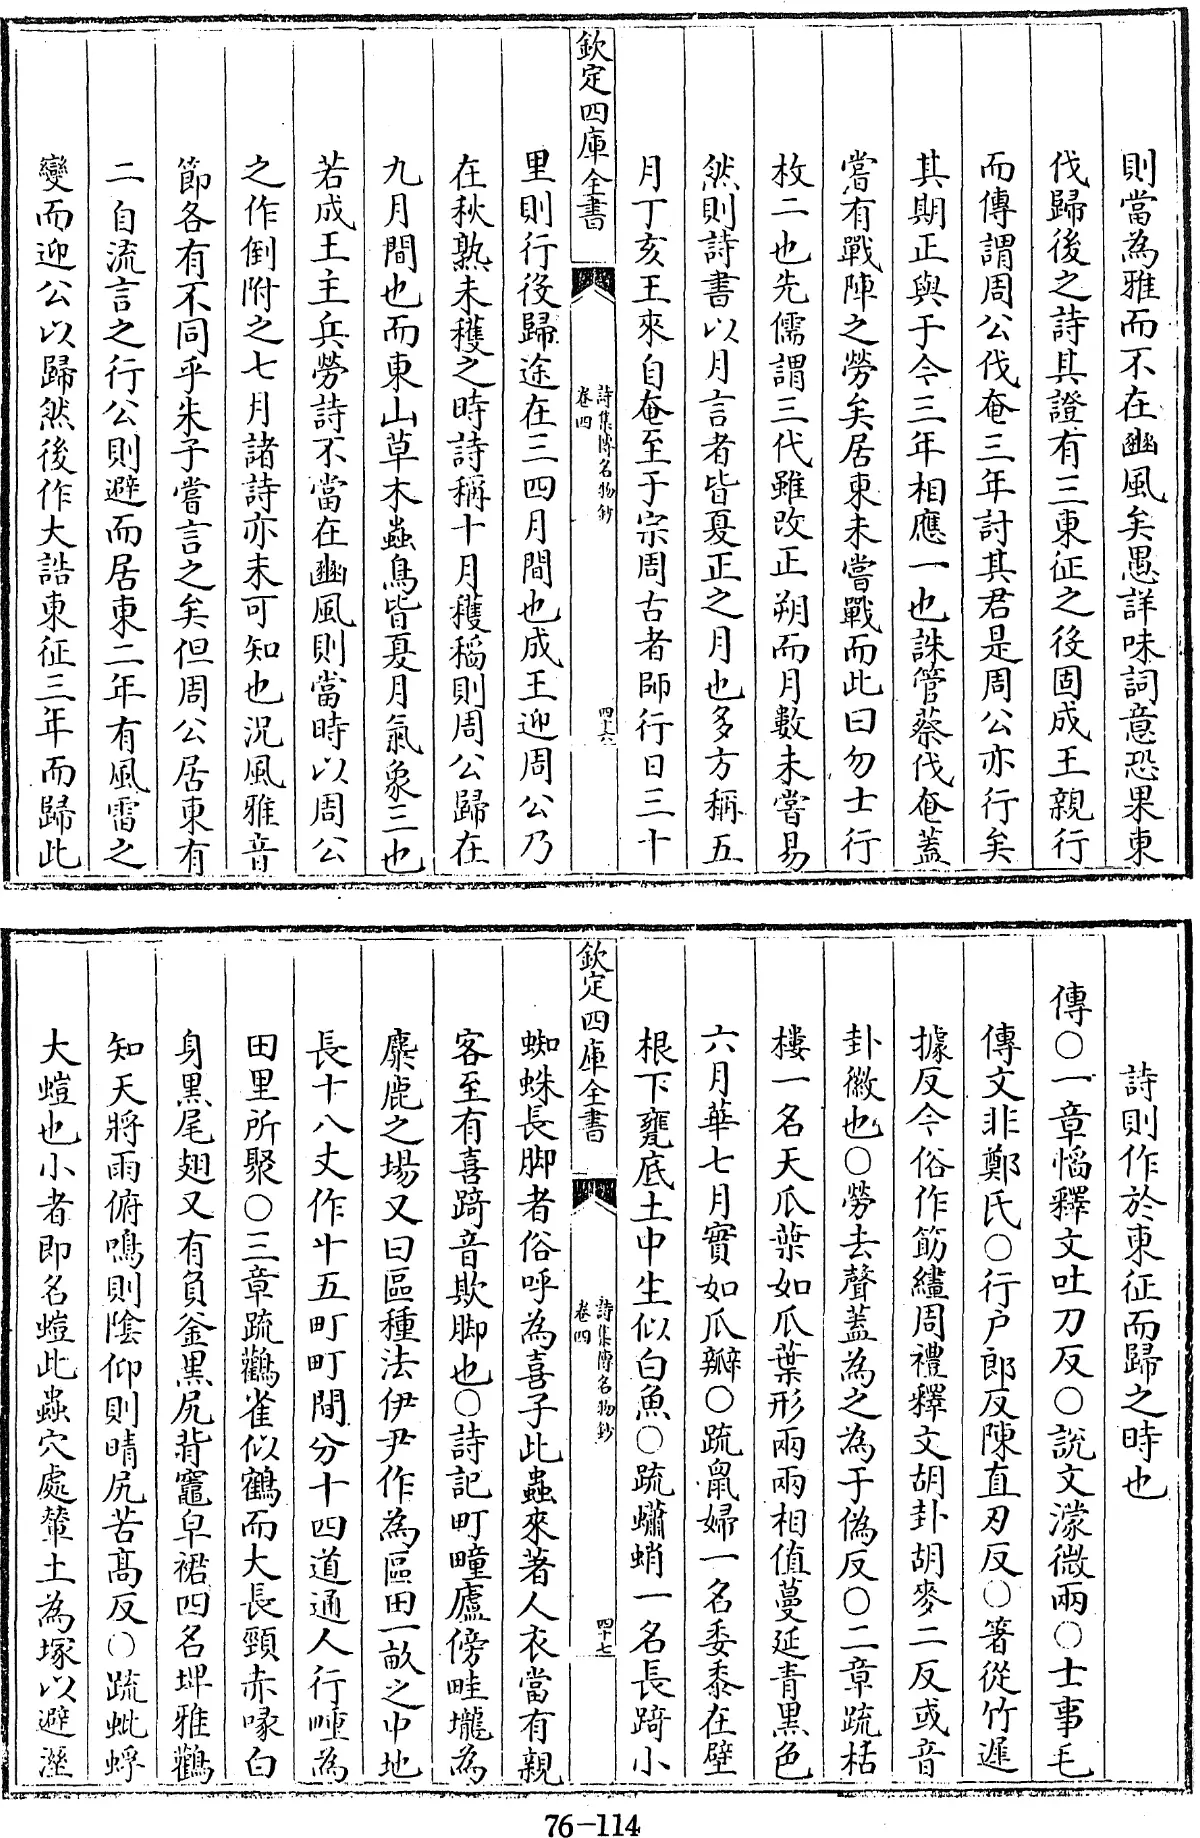 則當為雅而不在豳風矣愚詳味詞意恐果東
伐歸後之詩其證有三東征之後固成王親行
而傳謂周公伐奄三年討其君是周公亦行矣
其期正與于今三年相應一也誅管蔡伐奄蓋
嘗有戰陣之勞矣居東未嘗戰而此曰勿士行
枚二也先儒謂三代雖改正朔而月數未嘗易
然則詩書以月言者皆夏正之月也多方稱五
月丁亥王來自奄至于宗周古者師行日三十
欽定四庫全書
詩集傳名物鈔
卷四
四十六
里則行役歸途在三四月間也成王迎周公乃
在秋熟未穫之時詩稱十月穫稻則周公歸在
九月間也而東山草木蟲鳥皆夏月氣象三也
若成王主兵勞詩不當在豳風則當時以周公
之作倒附之七月諸詩亦未可知也況風雅音
節各有不同乎朱子嘗言之矣但周公居東有
二自流言之行公則避而居東二年有風雷之
變而迎公以歸然後作大誥東征三年而歸此
詩則作於東征而歸之時也
傳○一章慆釋文吐刀反○說文濛微雨○士事毛
傳文非鄭氏○行户郎反陳直刃反○箸從竹遲
據反今俗作筯繣周禮釋文胡卦胡麥二反或音
卦徽也○勞去聲蓋為之為于偽反○二章疏栝
樓一名天瓜葉如瓜葉形兩兩相值蔓延青黑色
六月華七月實如瓜瓣○疏鼠婦一名委黍在壁
根下甕底土中生似白魚○疏蠨蛸一名長踦小
欽定四庫全書
詩集傳名物鈔
卷四
四十七
蜘蛛長脚者俗呼為喜子此蟲來著人衣當有親
客至有喜踦音欺脚也○詩記町疃廬傍畦壠為
麋鹿之場又曰區種法伊尹作為區田一畝之中地
長十八丈作十五町町間分十四道通人行畽為
田里所聚○三章疏鸛雀似鶴而大長頸赤喙白
身黑尾翅又有負釜黑尻背竈皁裙四名埤雅鸛
知天將雨俯鳴則陰仰則晴尻苦高反○疏蚍蜉
大螘也小者即名螘此蟲穴處輦土為塚以避溼
76-114